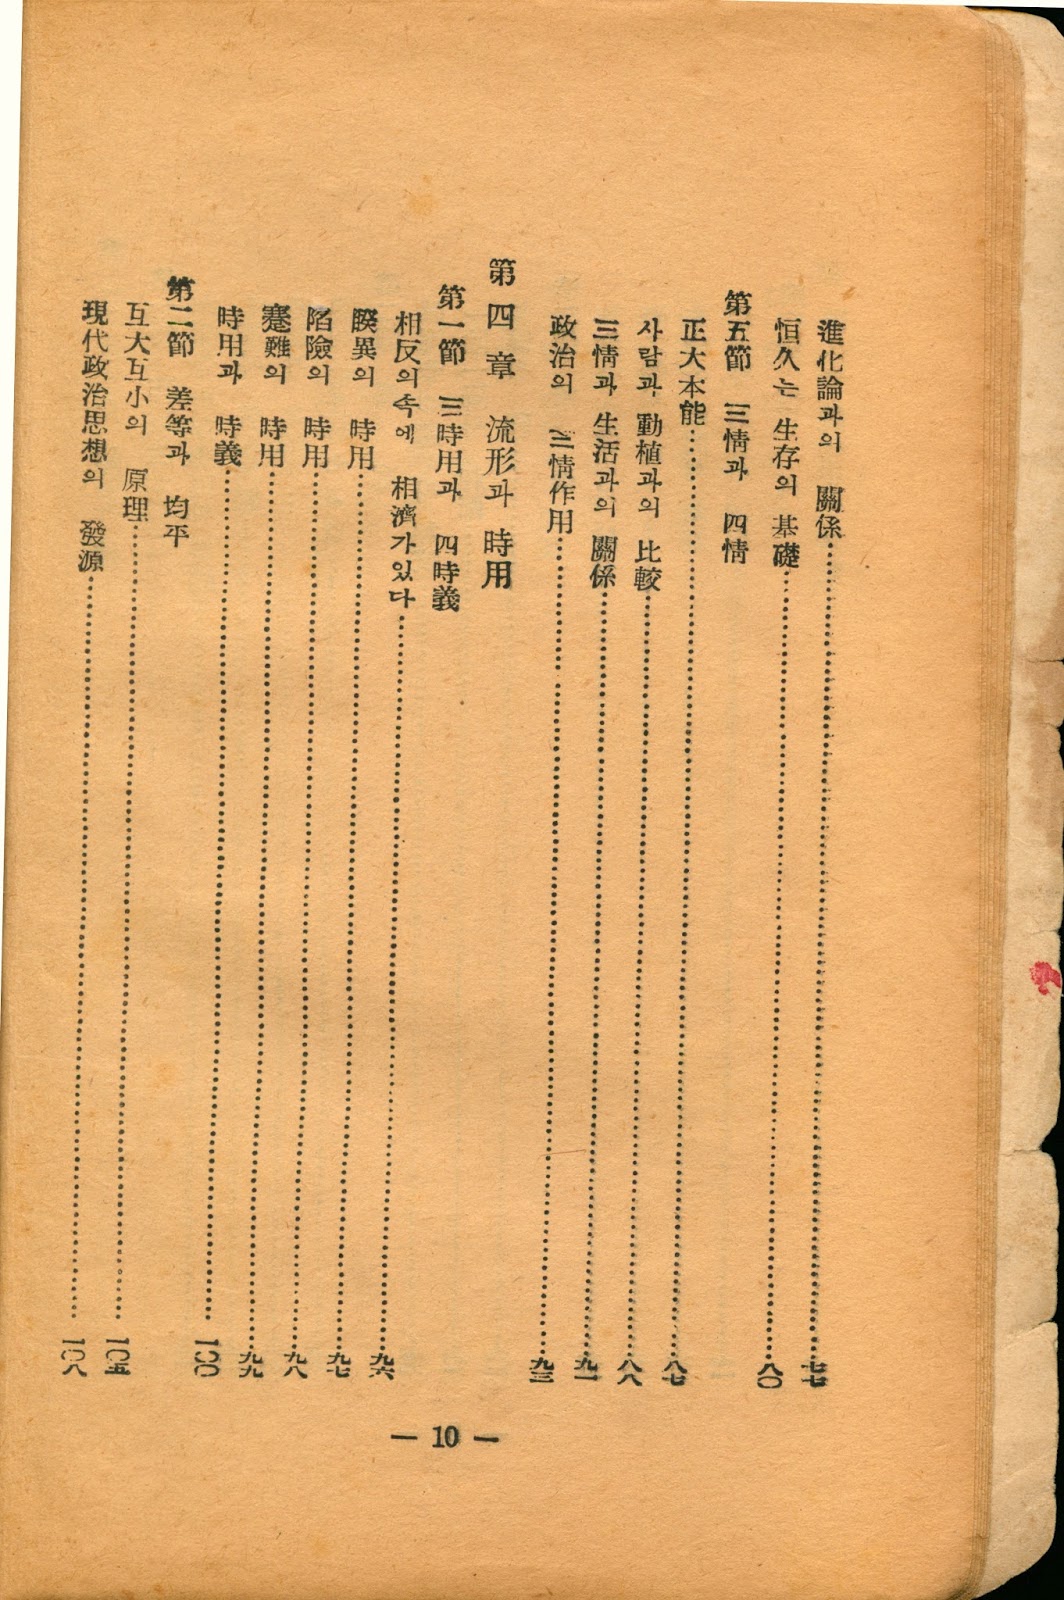 進化論과의 關係……七七
恒久는 生存의 基礎……八〇
第五節 三情과 四情
正大本能……八七
사람과 動植과의 比較……八八
三情과 生活과의 關係……九一
政治의 三情作用……九三
第四章 流形과 時用
第一節 三時用과 四時義
相反의속에 相濟가있다……九六
睽異의 時用……九七
陷險의 時用……九八
蹇難의 時用……九九
時用과 時義……一〇〇
第二節 差等과 均平
互大互小의 原理……一〇五
現代政治思想의 發源……一〇八
— 10 —